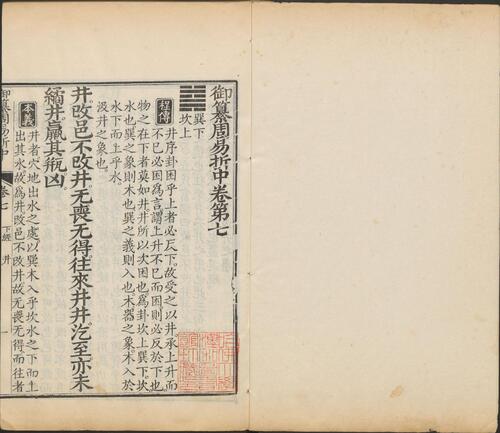 御纂周易折中卷第七
巽下
坎上
程傳
井序卦困乎上者必反下故受之以井承上升而
不已必困爲言謂上升不已而困則必反於下也
物之在下者莫如井井所以次困也爲卦坎上巽下坎
水也巽之象則木也巽之義則入也木器之象木入於
水下而上乎水
汲井之象也
井改邑不改井无喪无得往來井井汔至亦未
繘井羸其瓶凶
本義
井者穴地出水之處以巽木入乎坎水之下而上
出其水故爲井改邑不改井故无喪无得而往者
御纂周易折中
卷七
下經
井
一